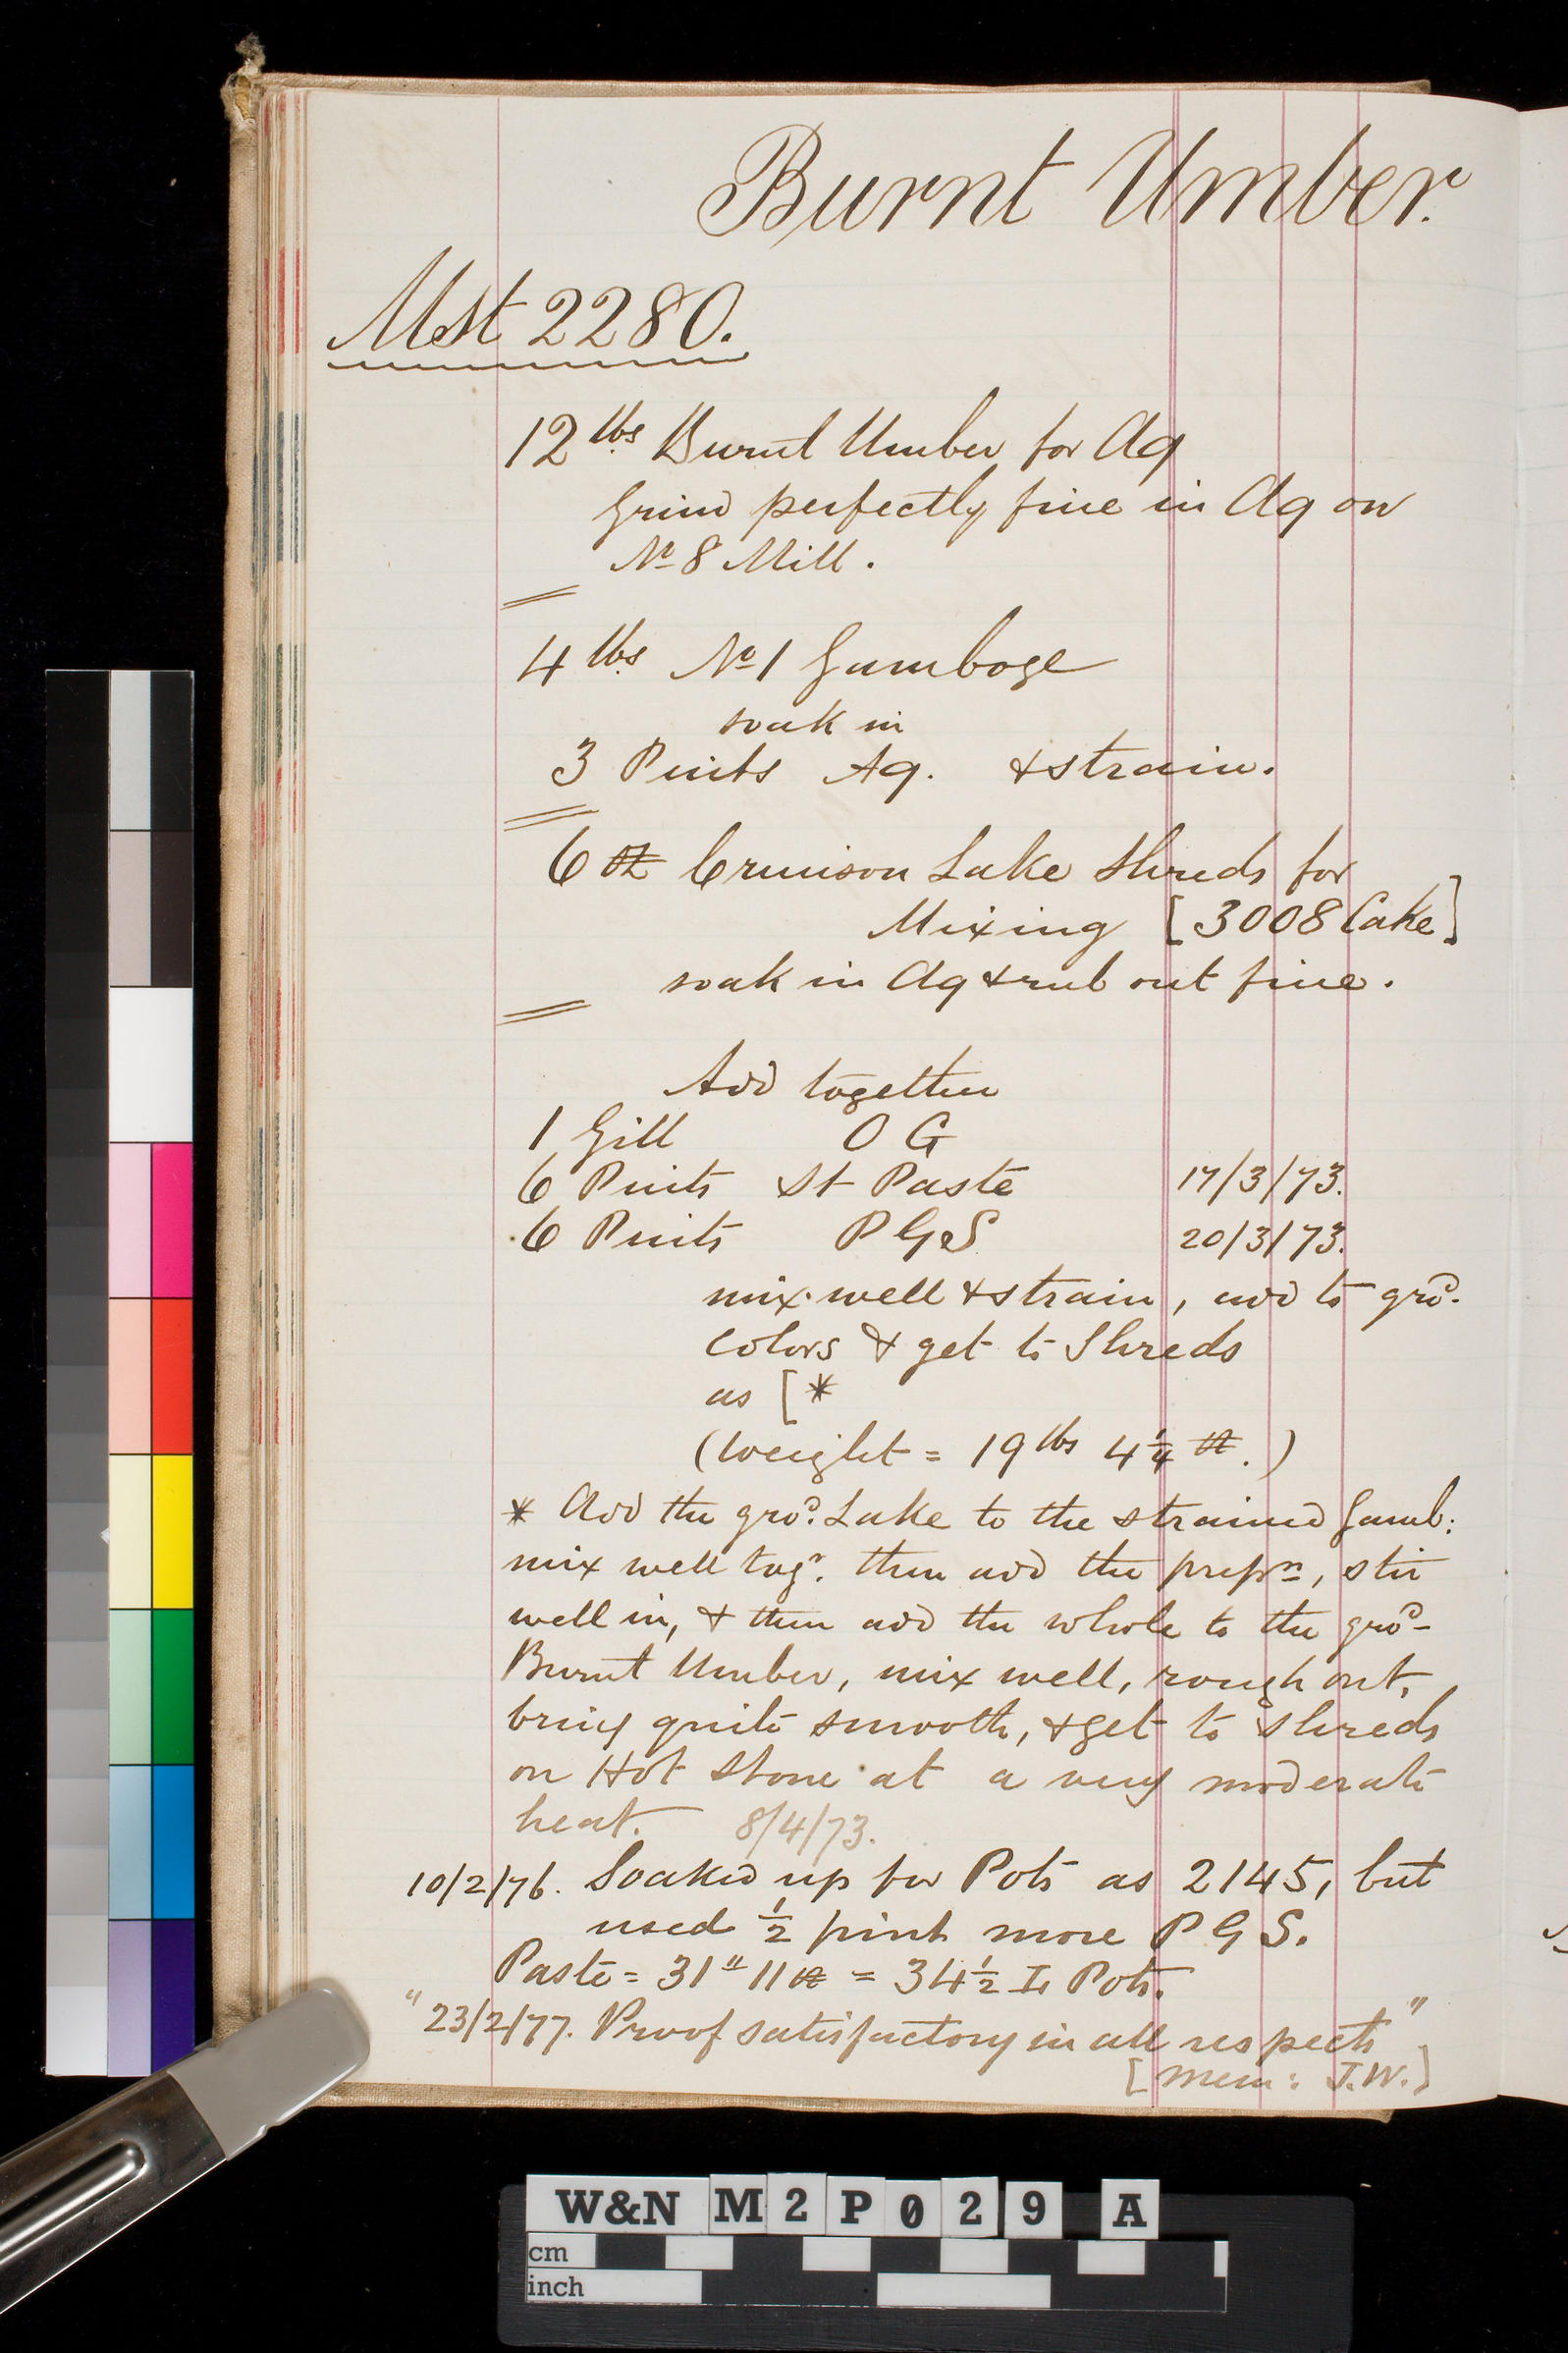 Burnt Umber.
Mst 2280.
12 lbs Burnt Umber for Aq
Grind perfectly fine in Aq on
No 8 Mill.
4 lbs No 1 Gamboge
soak in
3 Pints Aq. & strain.
6 oz Crimson Lake Shreds for
Mixing [3008 Cake]
soak in Aq & rub out fine.
Add together
1 Gill O G
6 Pints St Paste 17/3/73.
6 Pints P G S 20/3/73.
mix well & strain, add to grd.
colors & get to Shreds
as [*
(weight = 19 lbs 4 1/4 oz.)
* Add the grd. Lake to the strained Gamb:
mix well togr. then add the prepn, stir
well in, & then add the whole to the grd
Burnt Umber, mix well, rough out,
bring quite smooth, & get to shreds
on Hot Stone at a very moderate
heat. 8/4/73.
10/2/76. Soaked up for Pots as 2145, but
used 1/2 pint more P G S.
Paste = 31" 11 oz = 34 1/2 Pots.
"23/2/77. Proof satisfactory in all respects"
[Mem: J.W.]
W&N M2P029 A
cm
inch